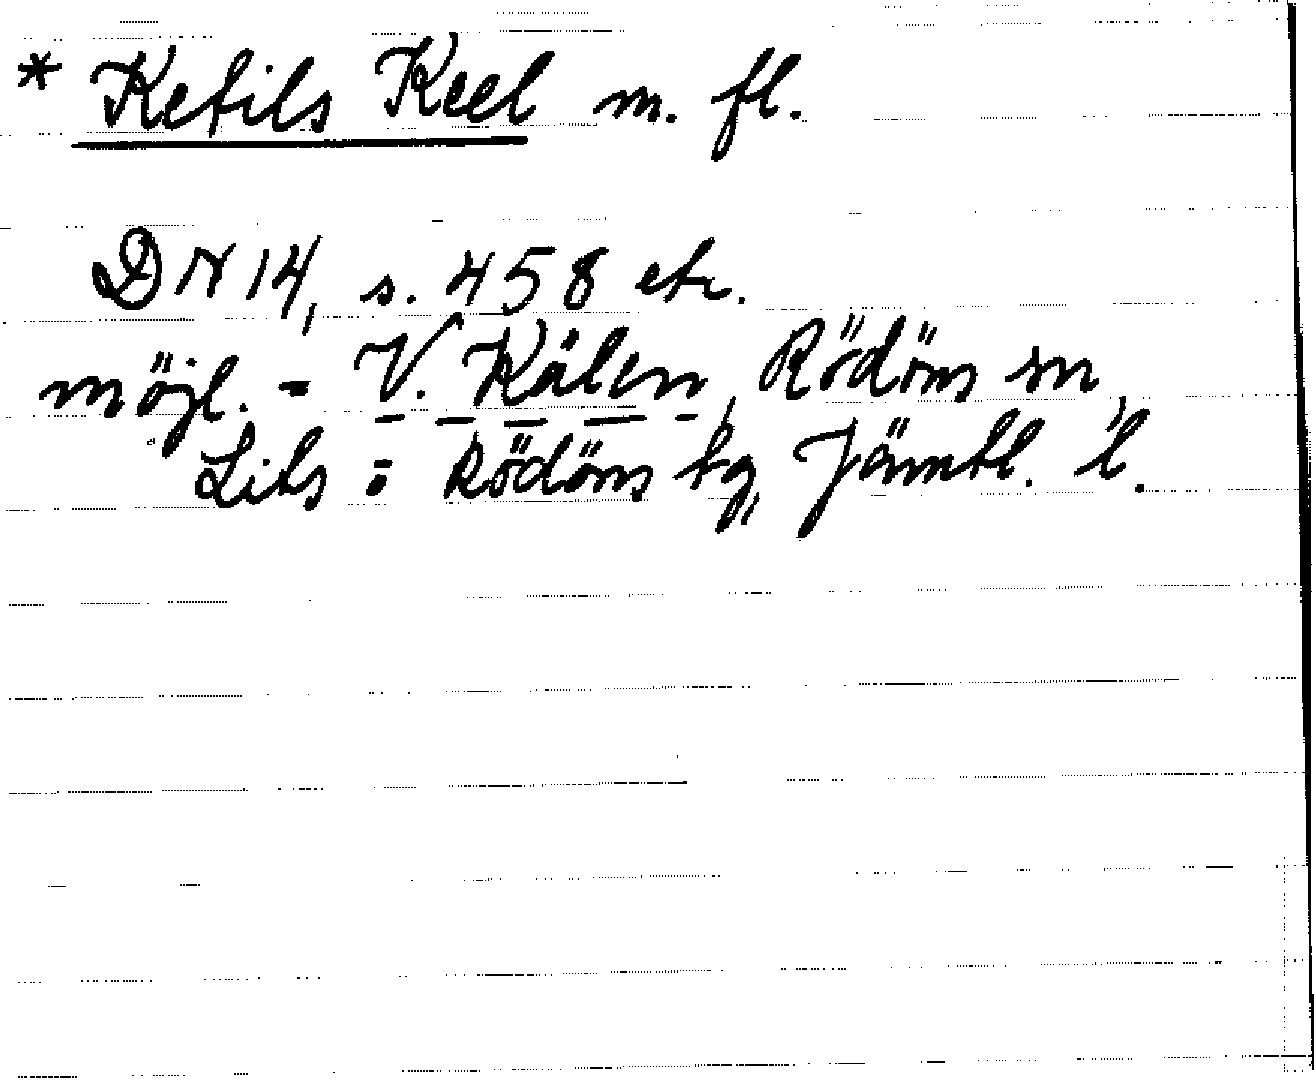 * Ketils Keel m. fl.
DN 14, s. 458 etc.
möjl. = V. Kälen, Rödöns sn,
Lits o Rödöns tg, Jämtl. l.